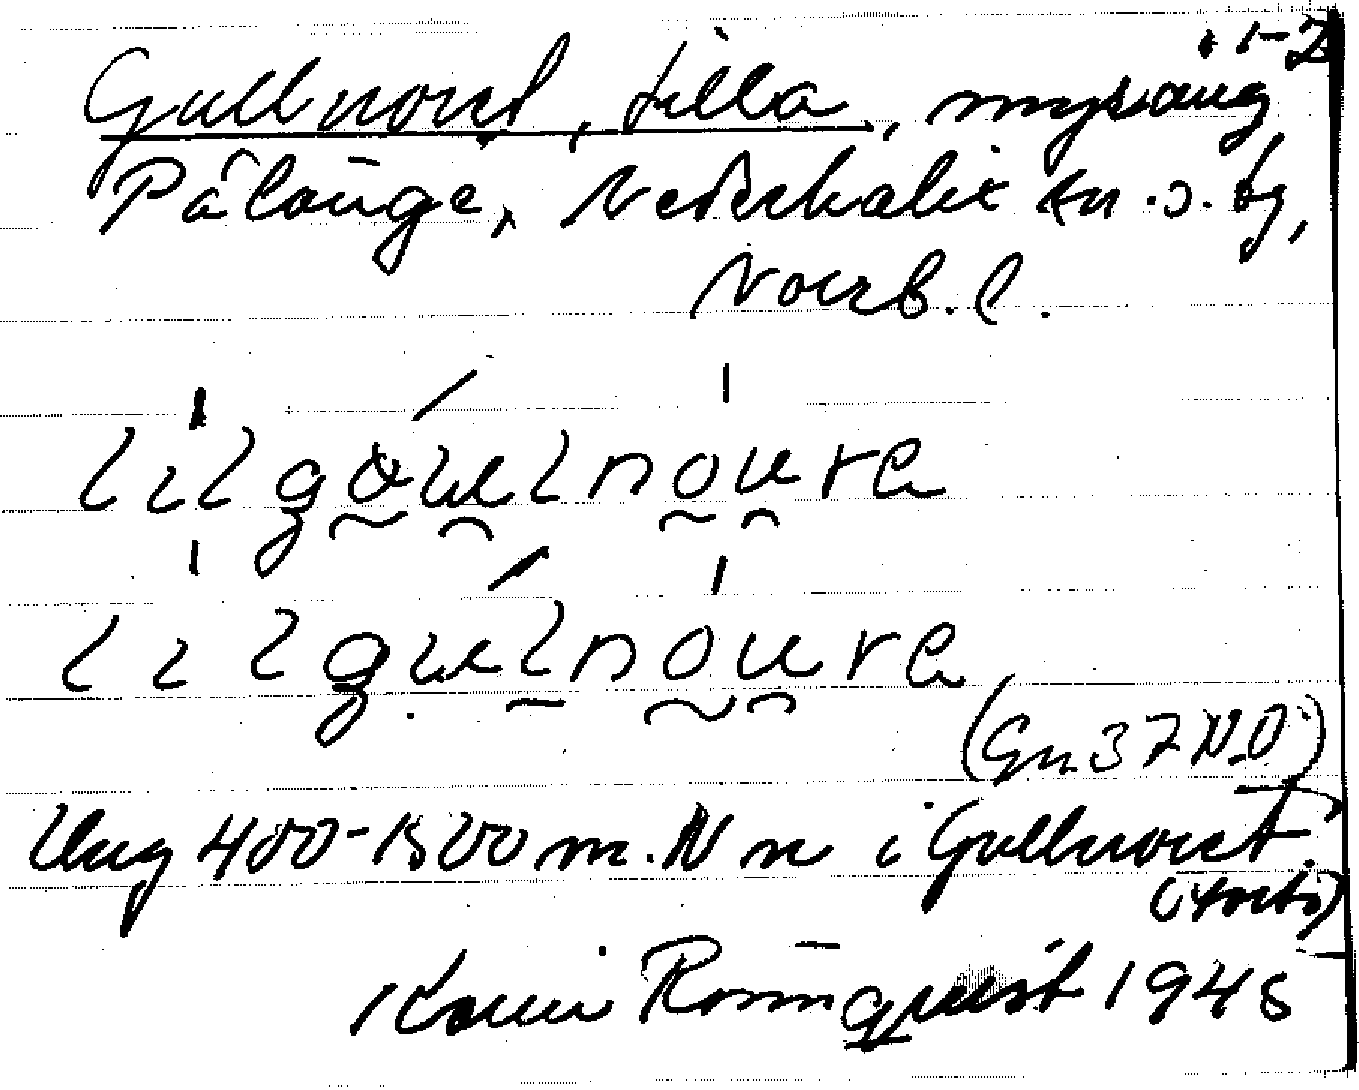 1-2
Gullnoret, lilla, myräng
Pålänge, Nederkalix sn. o. tg,
Norrb. l.
lilgouelnoura
lilguelnoura
(Gn. 37 N.O)
Ung 400-1500 m. N n i Gullnoret.
Karin Rönnquist 1945